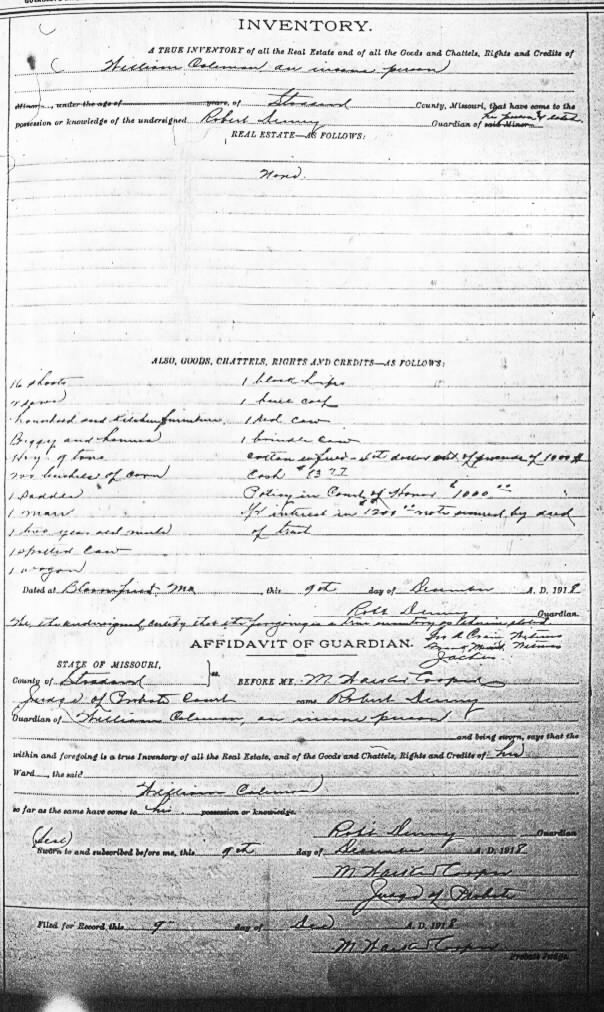 INVENTORY.
A TRUE INVENTORY of all the Real Estate and of all the Goods and Chattels, Rights and Credits of
William Coleman, an insane person
Minor..., under the age of years, of Stoddard County, Missouri, that have come to the
possession or knowledge of the undersigned Robert Denny Guardian of said Minor his person & estate
REAL ESTATE—AS FOLLOWS:
None.
ALSO, GOODS, CHATTELS, RIGHTS AND CREDITS—AS FOLLOWS:
16 shoats 1 black heifer
1 bull calf
household and kitchen furniture, 1 red cow
Buggy and harness 1 brindle cow
Hay tons cotton of 1000 #
200 bushels of corn Cash $
1 saddle Policy in Court of Honor $1000.00
1 mare interest in $1200.00 note secured by deed
1 two year old mule of trust
1 spotted cow
1 wagon
Dated at Bloomfield Mo, this 9th day of December A. D. 1918
Robt Denny Guardian.
The undersigned, certify that the foregoing is a true inventory
Witness
AFFIDAVIT OF GUARDIAN. Witness
STATE OF MISSOURI,
County of Stoddard } ss. BEFORE ME, M Cooper
Judge of Probate Court came Robert Denny
Guardian of William Coleman, an insane person
and being sworn, says that the
within and foregoing is a true Inventory of all the Real Estate, and of the Goods and Chattels, Rights and Credits of his
Ward..., the said
William Coleman
so far as the same have come to his possession or knowledge.
Robt Denny Guardian
(Seal)
Sworn to and subscribed before me, this 9th day of December A. D. 1918
M Cooper
Judge of Probate
Filed for Record, this 9 day of Dec A. D. 1918
M Cooper
Probate Judge.